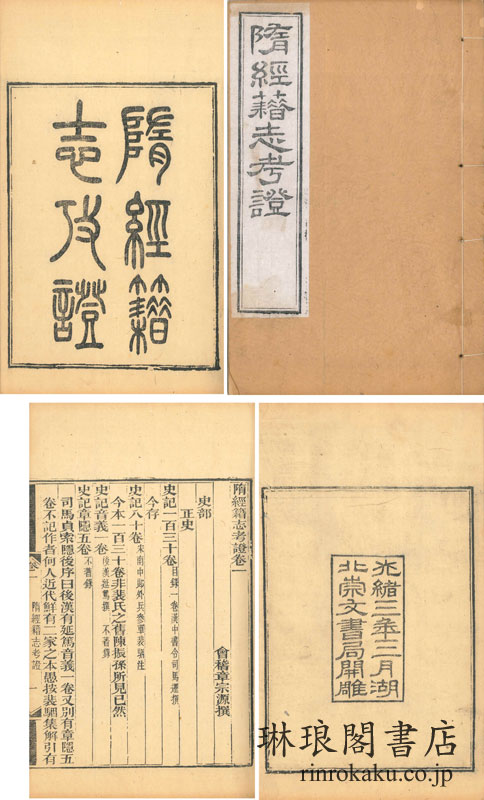 隋經籍
志攷證
隋經籍志考證
隋經籍志考證卷一
會稽章宗源撰
史部
正史
史記一百三十卷目錄一卷漢中書令司馬遷撰
今存
史記八十卷宋南中郎外兵參軍裴駰注
今本一百三十卷非裴氏之舊陳振孫所見已然
史記音義一卷後漢延篤撰 不著錄
史記章隱五卷不著錄
司馬貞索隱後序曰後漢有延篤音義一卷又別有章隱五
卷不記作者何人近代鮮有二家之本愚按裴駰集解引有
卷一
隋經籍志考證
一
光緒三年十二月湖
北崇文書局開雕
琳琅閣書店
rinrokaku.co.jp